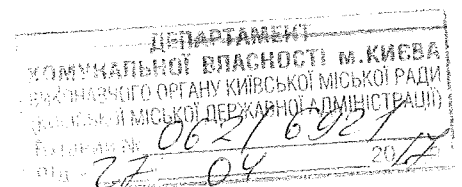 ДЕПАРТАМЕНТ
КОМУНАЛЬНОЇ ВЛАСНОСТІ М.КИЄВА
ВИКОНАВЧОГО ОРГАНУ КИЇВСЬКОЇ МІСЬКОЇ РАДИ
(КИЇВСЬКОЇ МІСЬКОЇ ДЕРЖАВНОЇ АДМІНІСТРАЦІЇ)
№ 062/6921
від 27 04 2017